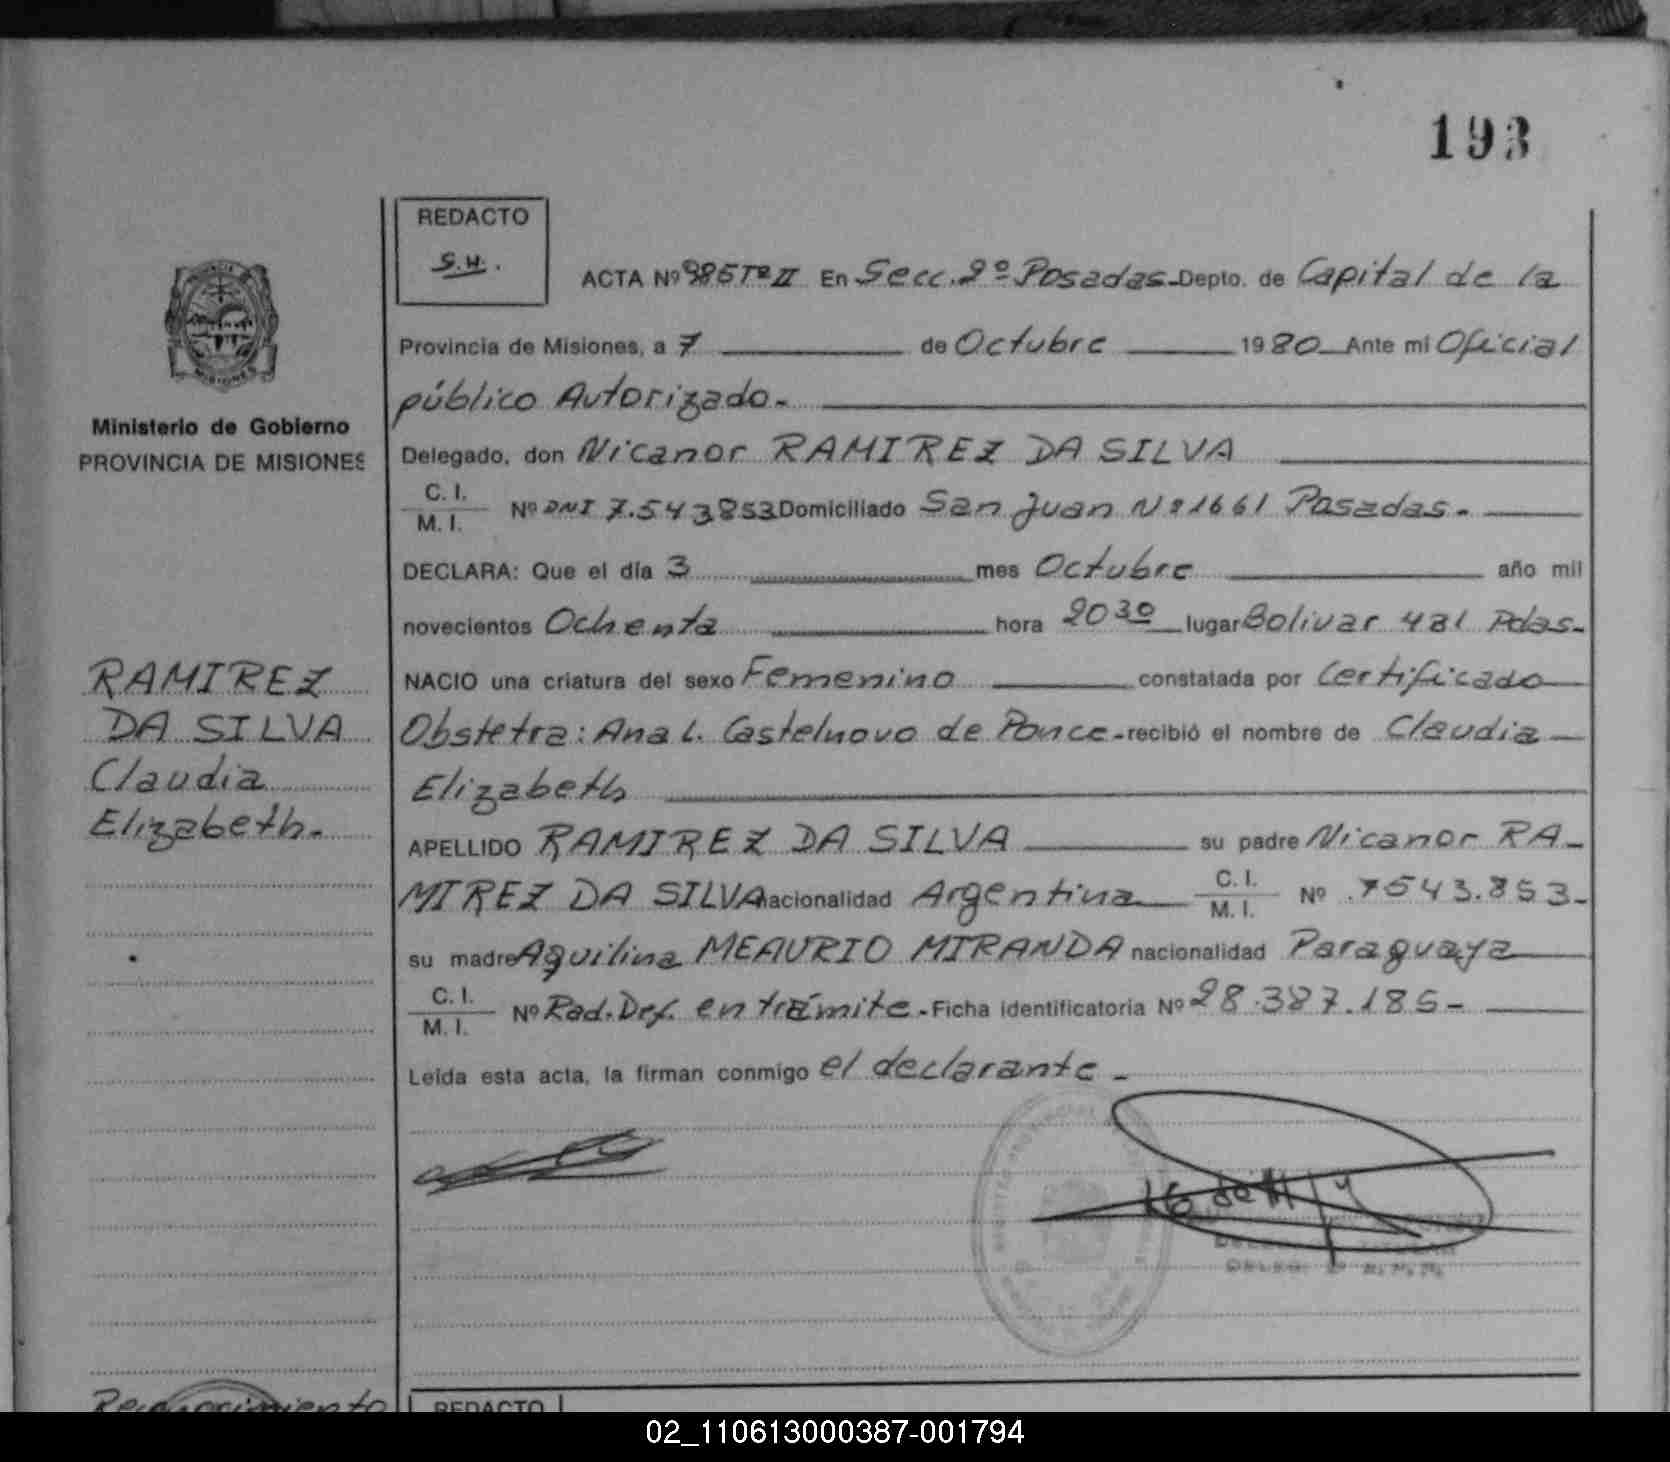 193
REDACTO
S.H.
ACTA Nº 985 Tº II En Secc. 2º Posadas - Depto. de Capital de la
Provincia de Misiones, a 7 de Octubre 1980 Ante mi Oficial
público Autorizado.
Delegado, don Nicanor RAMIREZ DA SILVA
C. I.
M. I. Nº DNI 7.543853 Domiciliado San Juan Nº 1661 Posadas.
DECLARA: Que el día 3 mes Octubre año mil
novecientos Ochenta hora 20 30 lugar Bolivar 481 Pdas.
NACIO una criatura del sexo Femenino constatada por Certificado
Obstetra: Ana L. Castelnovo de Ponce - recibió el nombre de Claudia
Elizabeth
APELLIDO RAMIREZ DA SILVA su padre Nicanor RA-
MIREZ DA SILVA nacionalidad Argentina C. I.
M. I. Nº 7543.853-
su madre Aquilina MEAURIO MIRANDA nacionalidad Paraguaya
C. I.
M. I. Nº Rad. Def. en trámite - Ficha identificatoria Nº 28.387.185-
Leída esta acta, la firman conmigo el declarante -
MISIONES
Ministerio de Gobierno
PROVINCIA DE MISIONES
RAMIREZ
DA SILVA
Claudia
Elizabeth.
Reconocimiento
REDACTO
02_110613000387-001794